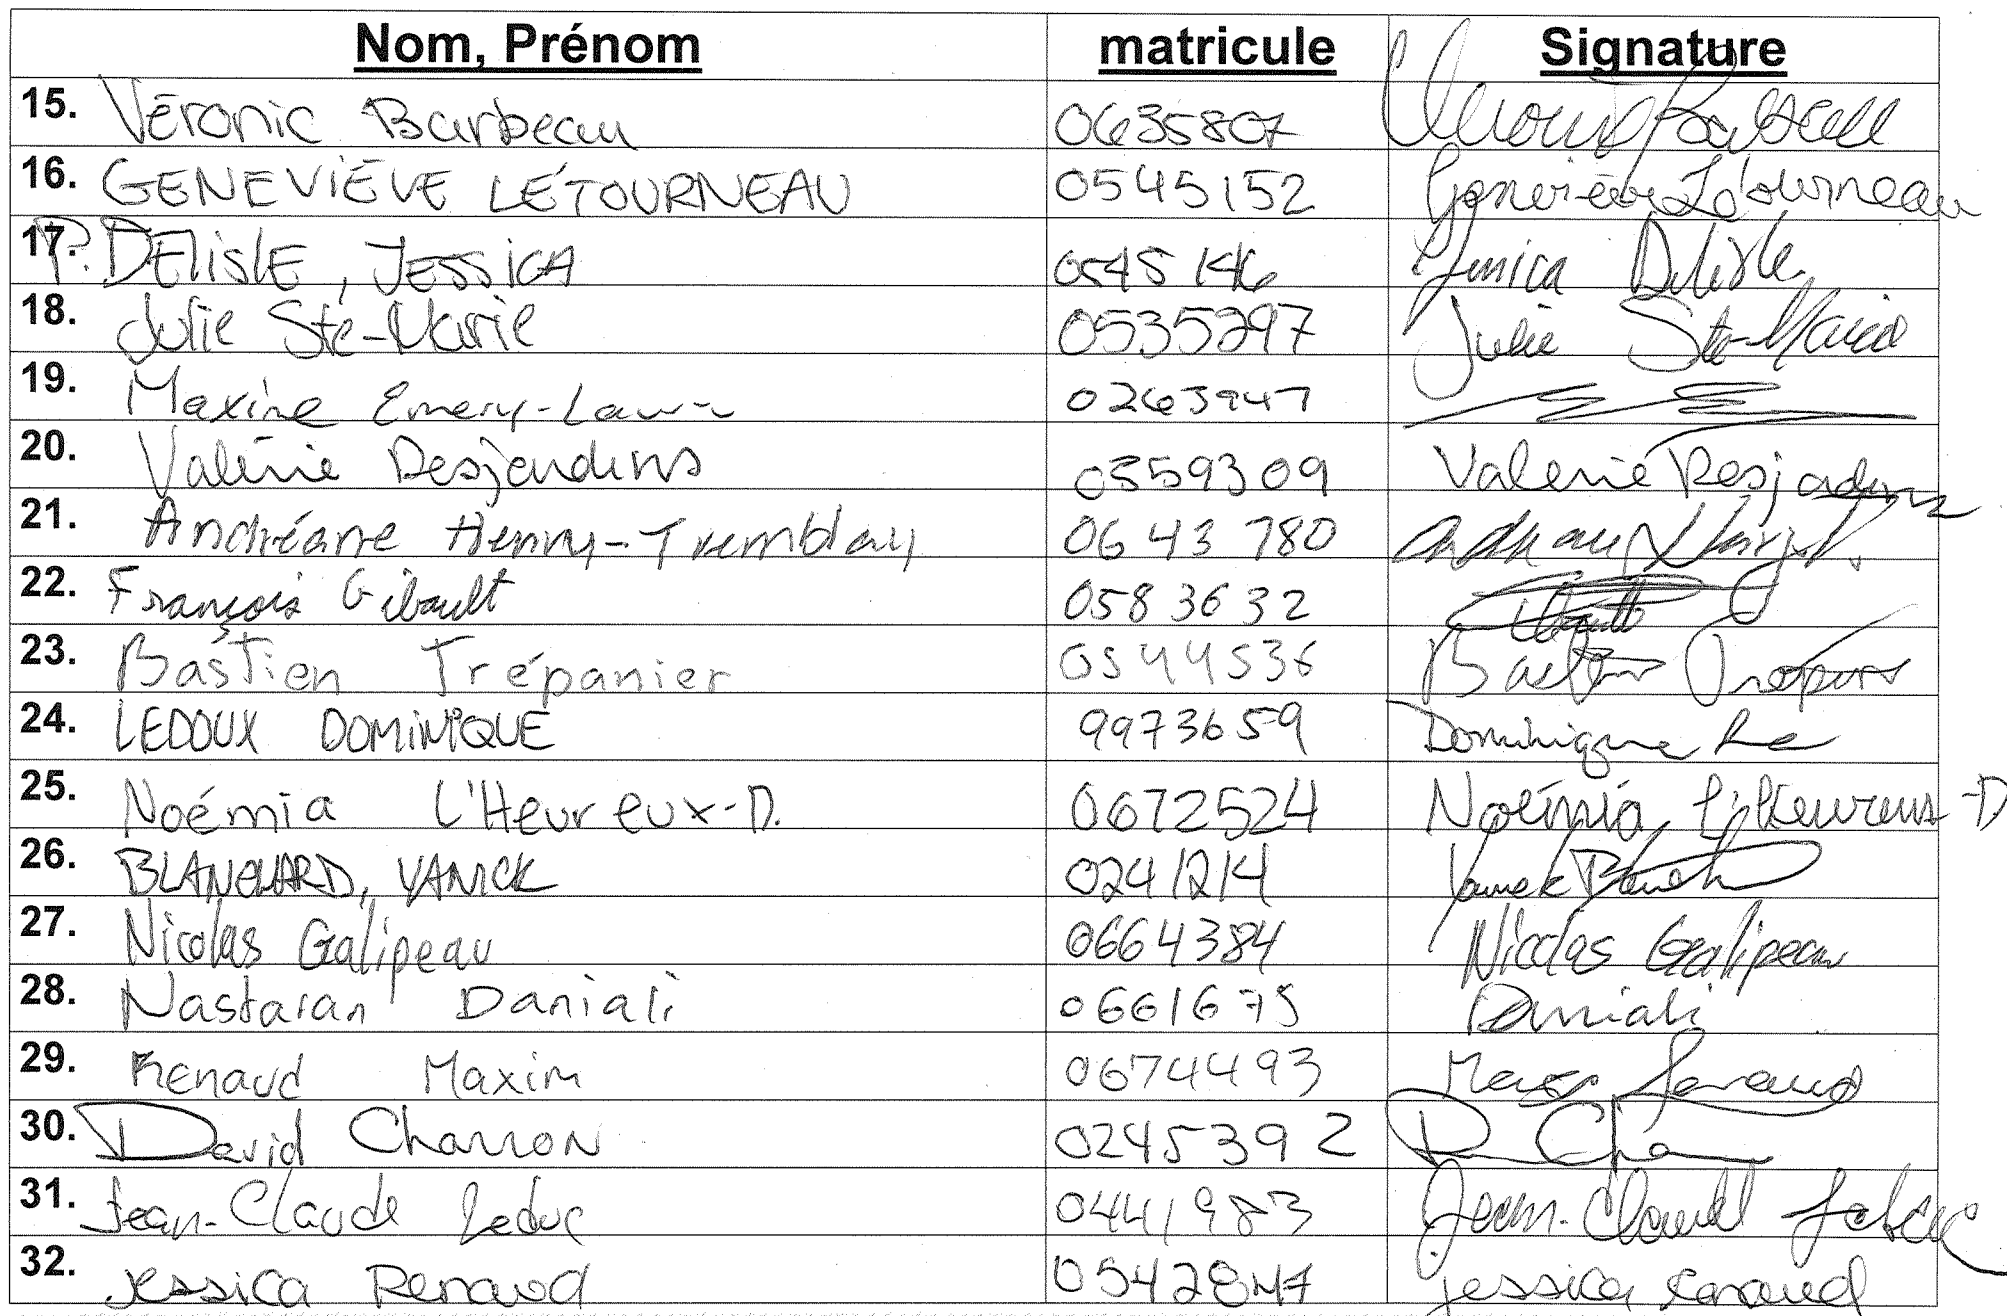 Nom, Prénom matricule Signature
15. Véronic Barbeau 0635807
16. GENEVIÈVE LÉTOURNEAU 0545152 Geneviève Létourneau
17. P. DELISLE, JESSICA 0545146 Jessica Delisle
18. Julie Ste-Marie 0535297 Julie Ste-Marie
19. Maxine Emery- 0263947
20. Valérie Desjardins 0359309 Valérie Desjardins
21. Andréane Henry-Tremblay 0643780
22. François Gibault 0583632
23. Bastien Trépanier 0544536 Bastien
24. LEDOUX DOMINIQUE 9973659 Dominique Le
25. Noémia L'Heureux-D. 0672524 Noémia L'Heureux-D
26. BLANCHARD, YANICK 0241214 Yanick
27. Nicolas Galipeau 0664384 Nicolas Galipeau
28. Nastaran Daniali 0661675 Daniali
29. Renaud Maxim 0674493 Renaud
30. David Charron 0245392 D Cha
31. Jean-Claude Leduc 0441983 Jean-Claude Leduc
32. Jessica Renaud 0542847 Jessica Renaud